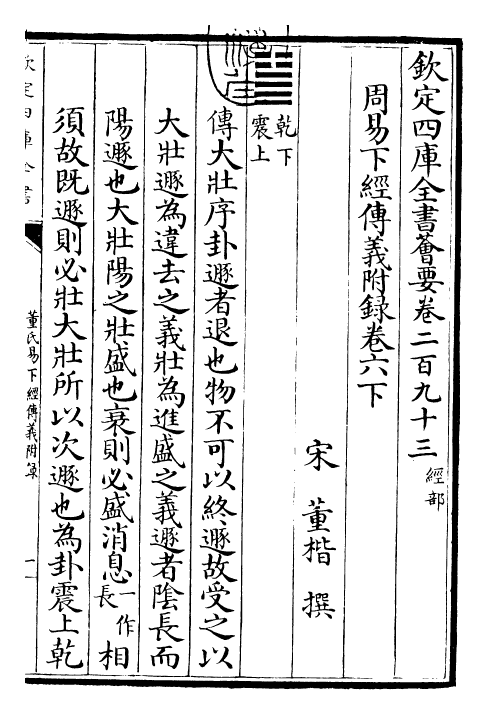 欽定四庫全書薈要卷二百九十三 經部
周易下經傳義附録卷六下
宋 董楷 撰
乾下
震上
傳大壯序卦遯者退也物不可以終遯故受之以
大壯遯為違去之義壯為進盛之義遯者陰長而
陽遯也大壯陽之壯盛也衰則必盛消息一作長相
須故既遯則必壯大壯所以次遯也為卦震上乾
欽定四庫全書
董氏易下經傳義附录
一